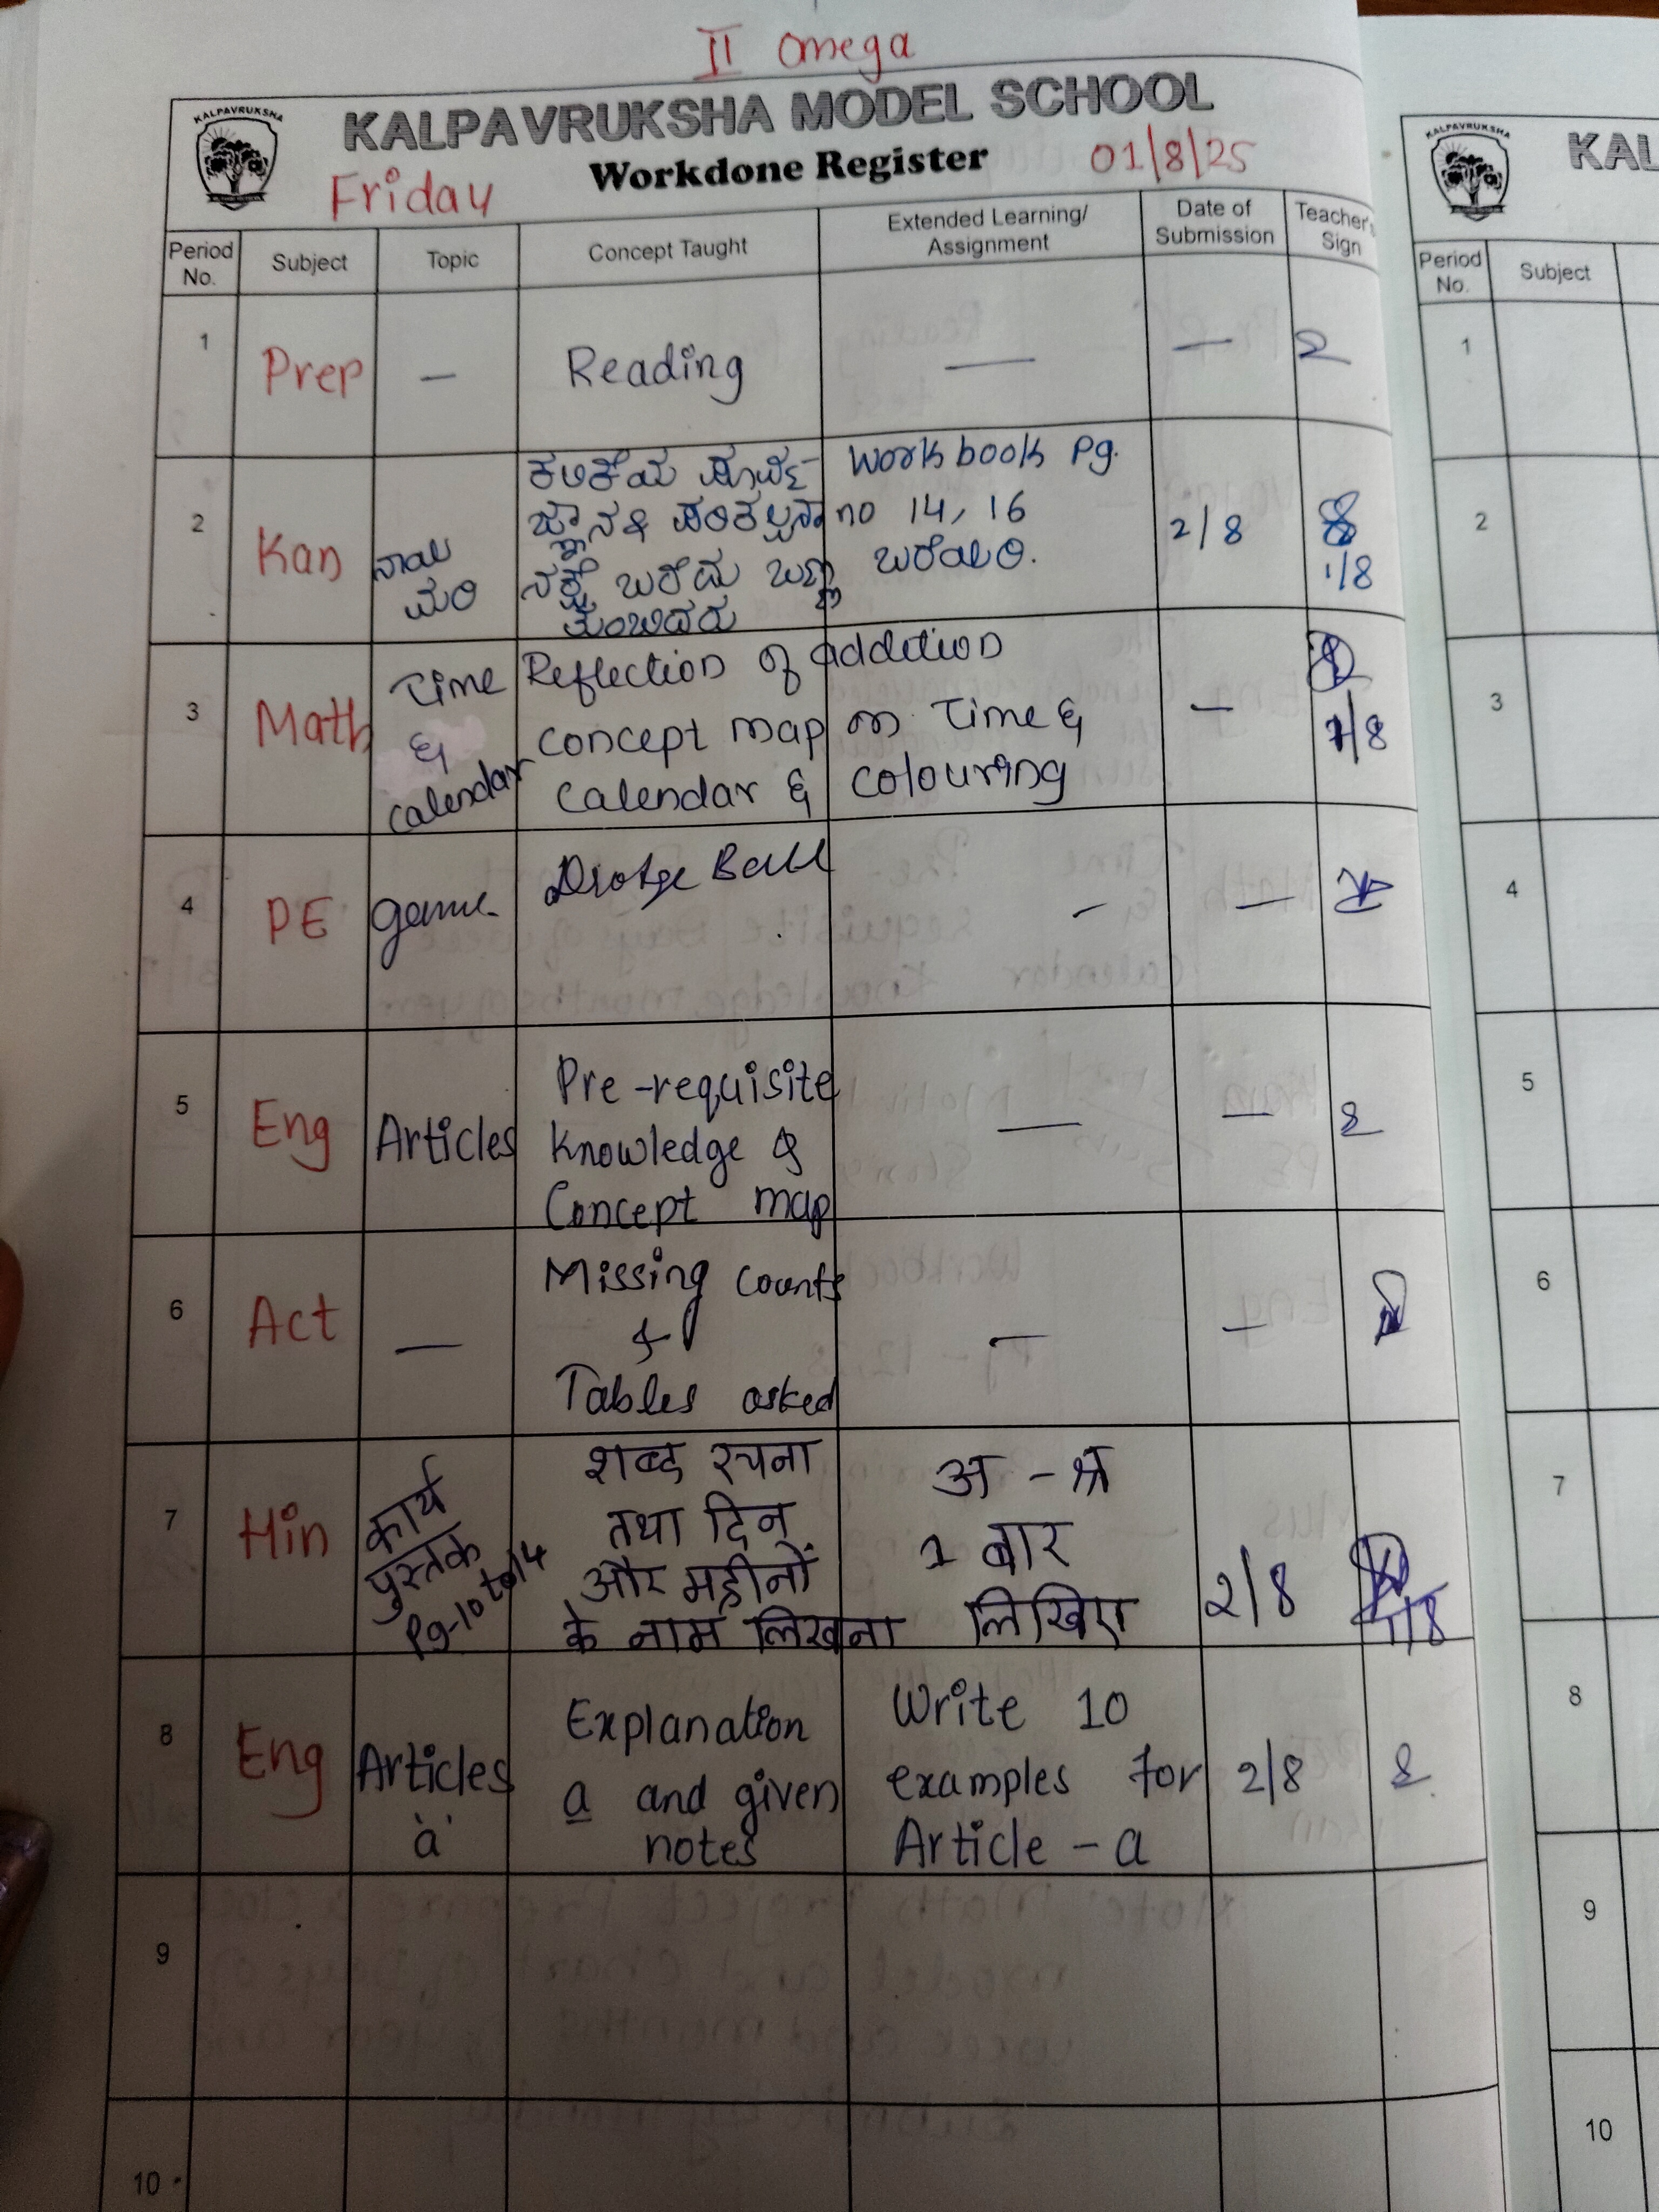 II Omega
KALPAVRUKSHA
KALPAVRUKSHA MODEL SCHOOL
Workdone Register
Friday
01/8/25
Period No.
Subject
Topic
Concept Taught
Extended Learning/
Assignment
Date of
Submission
Teacher's
Sign
1
Prep
—
Reading
—
—
2
Kan
ನಾಯಿ
ಮರಿ
ಕಲಿಕೆಯ ಪೂರ್ವ
ಜ್ಞಾನ & ಪರಿಕಲ್ಪನಾ
ನಕ್ಷೆ ಬರೆದು ಬಣ್ಣ
ತುಂಬಿದರು
Workbook Pg.
no 14, 16
ಬರೆಯಿರಿ.
2/8
1/8
3
Math
Time
&
calendar
Reflection of addition
concept map on Time &
calendar & colouring
—
1/8
4
PE
game.
Dodge Ball
-
—
5
Eng
Articles
Pre-requisite
knowledge &
Concept map
—
—
6
Act
—
Missing counts
&
Tables asked
—
—
7
Hin
कार्य
पुस्तक
Pg-10 to 14
शब्द रचना
तथा दिन
और महीनों
के नाम लिखना
अ - श्र
1 बार
लिखिए
2/8
1/8
8
Eng
Articles
'a'
Explanation
a and given
notes
Write 10
examples for
Article - a
2/8
9
10
KALPAVRUKSHA
KAL
Period
No.
Subject
1
2
3
4
5
6
7
8
9
10